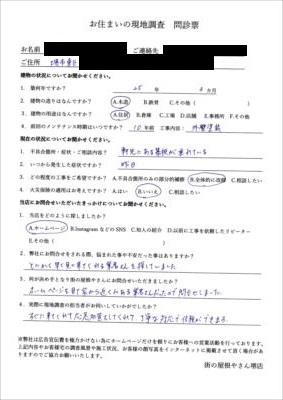 お住まいの現地調査 問診票
お名前 ご連絡先
ご住所 堺市東区
建物の状況についてお聞かせください。
1. 築何年ですか? 25 年 ヵ月
2. 建物の造りはなんですか? A.木造 B.鉄骨 C.その他( )
3. 建物の用途はなんですか? A.住居 B.倉庫 C.工場 D.店舗 E.事務所 F.その他
4. 前回のメンテナンス時期はいつですか? 10年前 工事内容: 外壁塗装
屋根の状況についてお聞かせください。
1. 不具合箇所・症状・ご相談内容? 軒先にある が垂れている
2. いつから発生した症状ですか? 昨日
3. どの程度の工事をご希望ですか? A.不具合箇所のみの部分的補修 B.全体的に改修 C.相談したい
4. 火災保険の適用はお考えですか? A.はい B.いいえ C.相談したい
当店にお問合せいただいたきっかけについてお聞かせください。
1. 当店をどのように探しましたか?
A.ホームページ B.InstagramなどのSNS C.知人の紹介 D.以前に工事を依頼したリピーター
E.その他( )
2. 弊社にお問合せをされる際、悩まれた事や不安だった事はありますか?
とにかく早く見に来てくれる業者さんを探していました
3. 何が決め手となり街の屋根やさんにお問合せいただきましたか?
ホームページを見て家から近くにある業者さんだったので問合せしました。
4. 実際に現地調査の担当者がお伺いしていかがでしたか?
すぐに来てくれて応急処置もしてくれて、丁寧な対応で信頼ができます。
※弊社は広告宣伝費を極力かけない為にホームページだけを頼りにお客様への営業活動を行っております。
上記内容やお客様宅の調査風景や施工状況、お客様の顔写真をインターネットに掲載させて頂く場合がありますのでご協力お願いいたします。
街の屋根やさん堺店